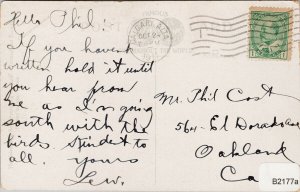 Hello Phil!
If you haven't
written hold it until
you hear from
me as I'm going
south with the
birds. Kindest to
all. yours
Lew.
CALGARY, ALTA
OCT 24
Mr. Phil Cost
564- El Dorado Ave
Oakland
Cal
B2177a